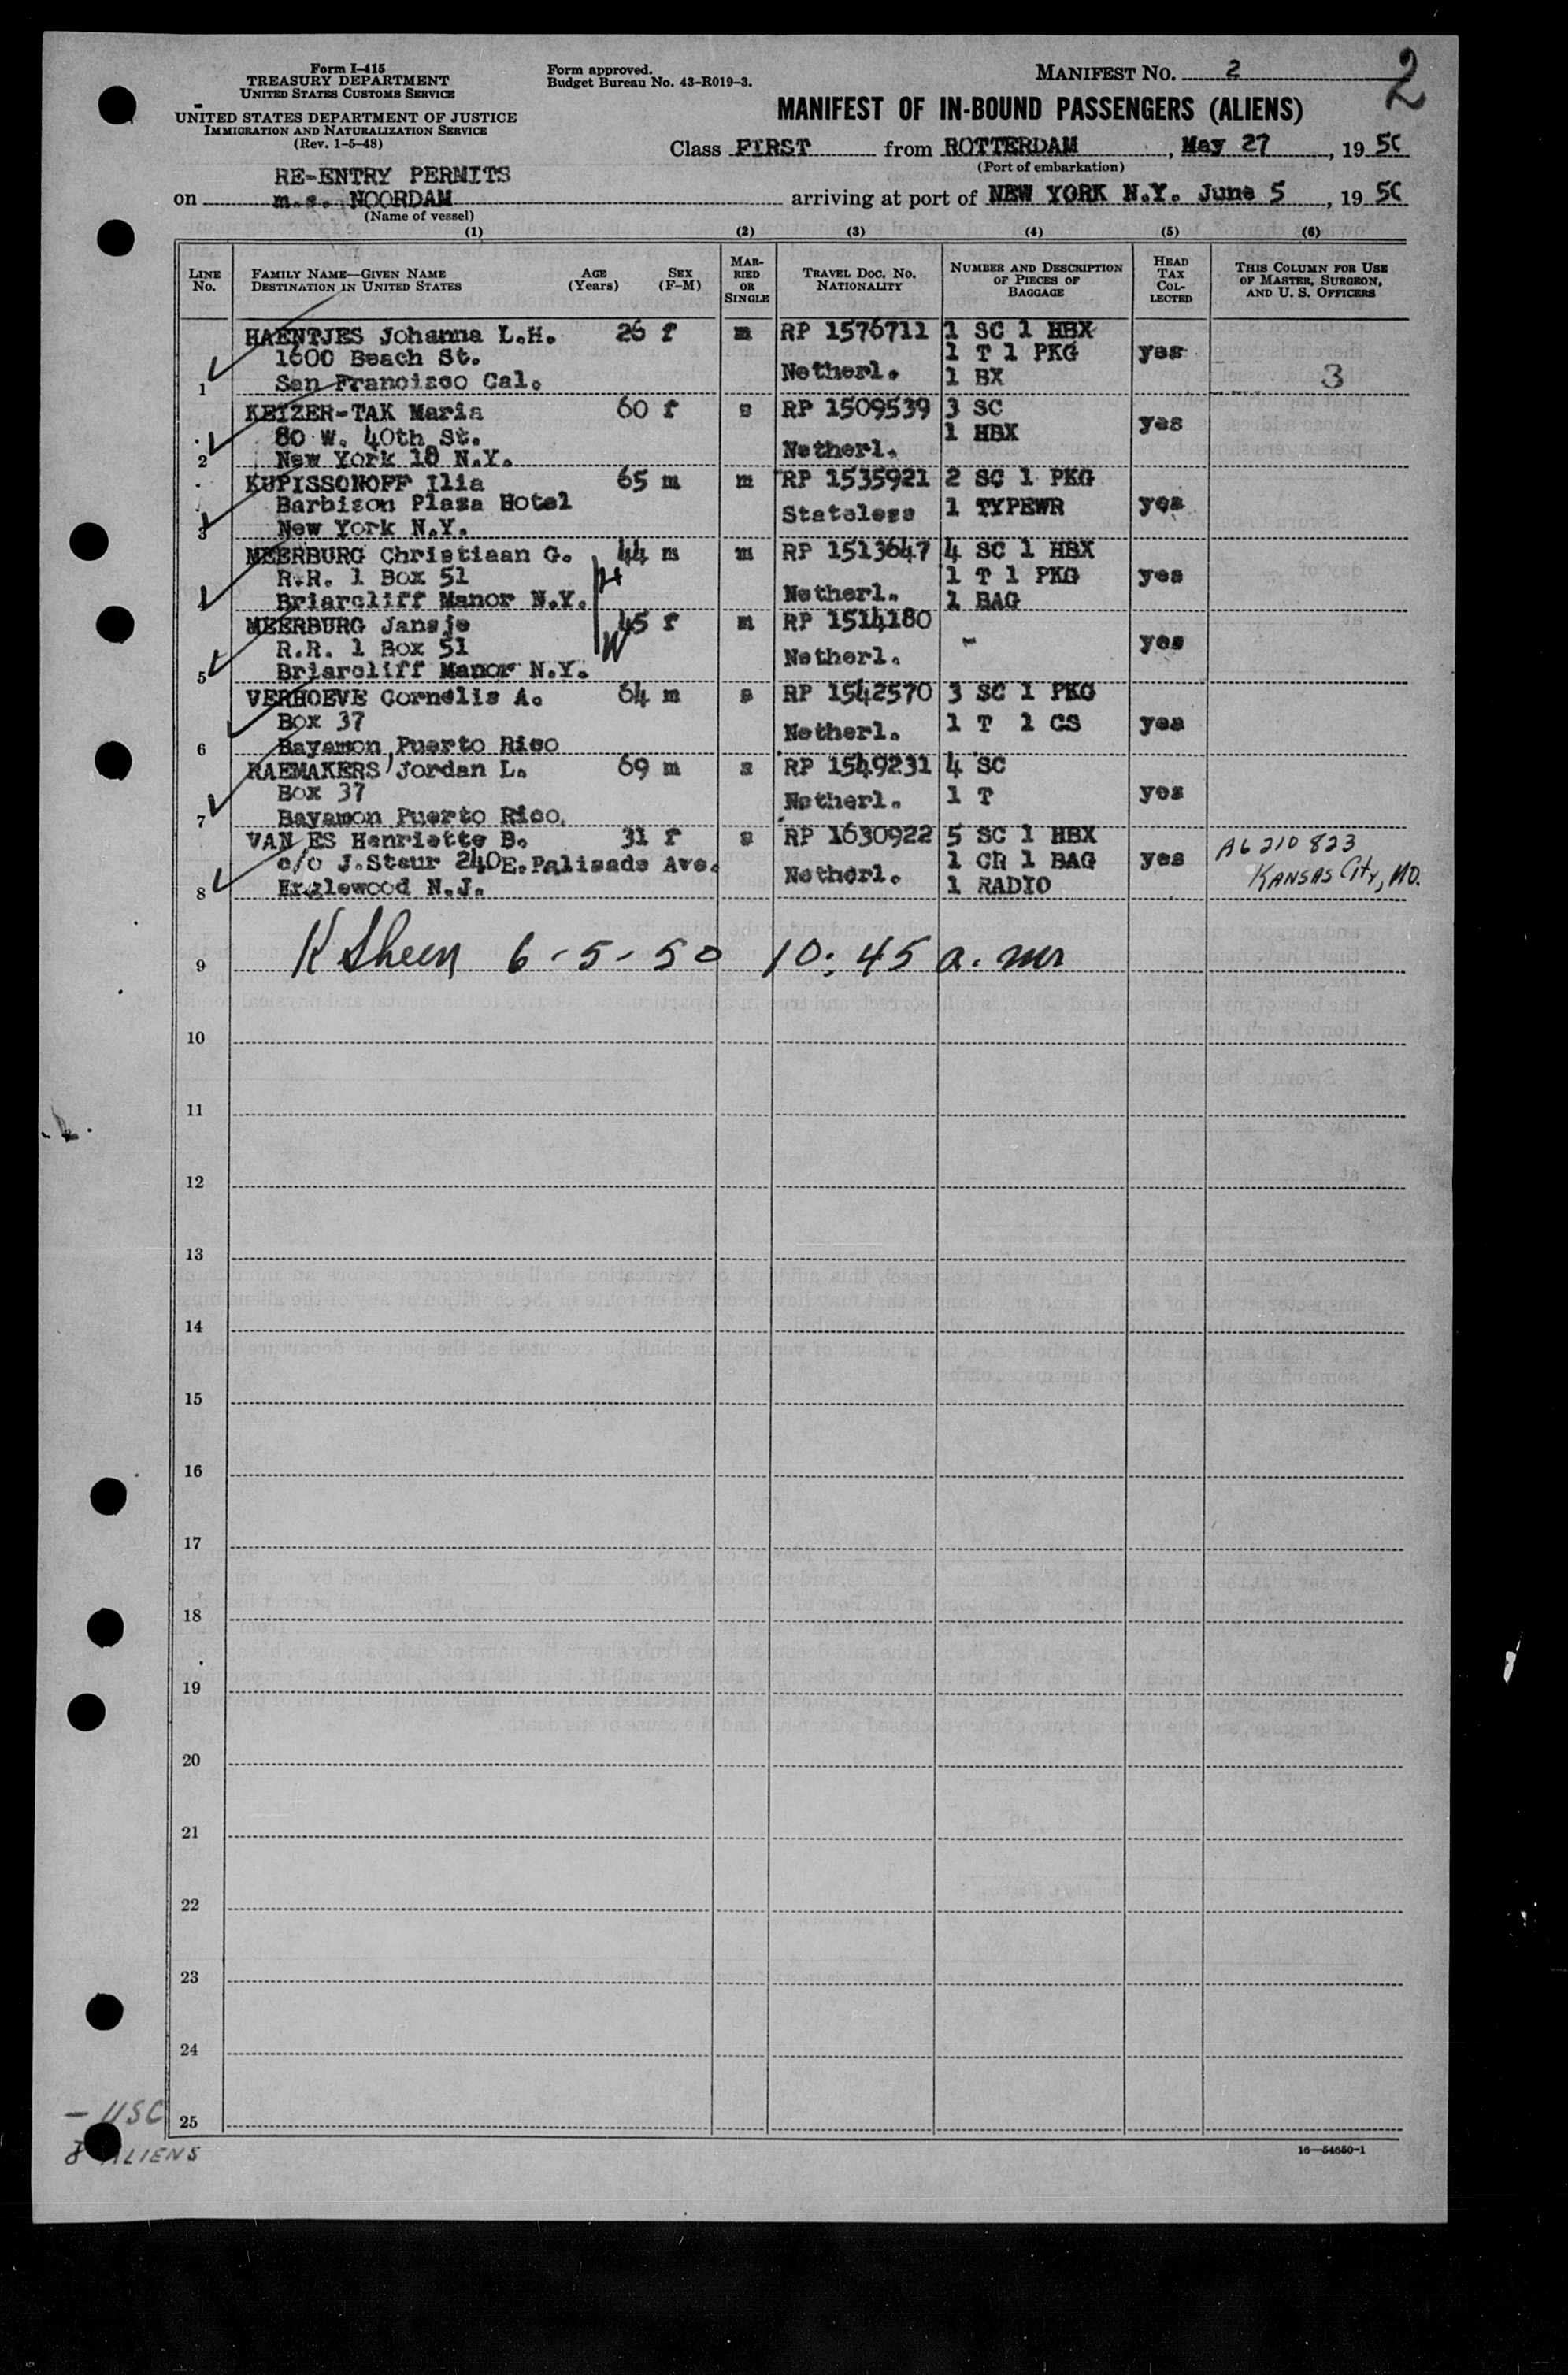 Form I-415
TREASURY DEPARTMENT
UNITED STATES CUSTOMS SERVICE
UNITED STATES DEPARTMENT OF JUSTICE
IMMIGRATION AND NATURALIZATION SERVICE
(Rev. 1-5-48)
Form approved.
Budget Bureau No. 43-R019-3.
MANIFEST NO. 2
2
MANIFEST OF IN-BOUND PASSENGERS (ALIENS)
Class FIRST from ROTTERDAM, May 27, 1950
(Port of embarkation)
RE-ENTRY PERMITS
on m.s. NOORDAM arriving at port of NEW YORK N.Y. June 5, 1950
(Name of vessel)
(1) (2) (3) (4) (5) (6)
LINE No.
FAMILY NAME—GIVEN NAME
DESTINATION IN UNITED STATES
AGE (Years)
SEX (F-M)
MARRIED OR SINGLE
TRAVEL DOC. NO.
NATIONALITY
NUMBER AND DESCRIPTION OF PIECES OF BAGGAGE
HEAD TAX COLLECTED
THIS COLUMN FOR USE OF MASTER, SURGEON, AND U. S. OFFICERS
HAENTJES Johanna L.H. 26 f m RP 1576711 1 SC 1 HBX
1600 Beach St. 1 T 1 PKG yes
1 San Francisco Cal. Netherl. 1 BX 3
KEIZER-TAK Maria 60 f s RP 1509539 3 SC
80 W. 40th St. 1 HBX yes
2 New York 18 N.Y. Netherl.
KUPISSONOFF Ilia 65 m m RP 1535921 2 SC 1 PKG
Barbizon Plaza Hotel Stateless 1 TYPEWR yes
3 New York N.Y.
MEERBURG Christiaan G. 44 m m RP 1513647 4 SC 1 HBX
R.R. 1 Box 51 H 1 T 1 PKG yes
Briarcliff Manor N.Y. Netherl. 1 BAG
MEERBURG Jansje 45 f m RP 1514180
R.R. 1 Box 51 W - yes
5 Briarcliff Manor N.Y. Netherl.
VERHOEVE Cornelis A. 64 m s RP 1542570 3 SC 1 PKG
Box 37 Netherl. 1 T 1 CS yes
6 Bayamon Puerto Rico
RAEMAKERS Jordan L. 69 m s RP 1549231 4 SC
Box 37 Netherl. 1 T yes
7 Bayamon Puerto Rico.
VAN ES Henriette B. 31 f s RP 1630922 5 SC 1 HBX A6 210 823
c/o J.Staur 240E.Palisade Ave. 1 Ch 1 BAG yes KANSAS City, MO.
8 Englewood N.J. Netherl. 1 RADIO
9 K Sheen 6-5-50 10:45 a.m
10
11
12
13
14
15
16
17
18
19
20
21
22
23
24
25
- USC
8 ALIENS
16—54650-1